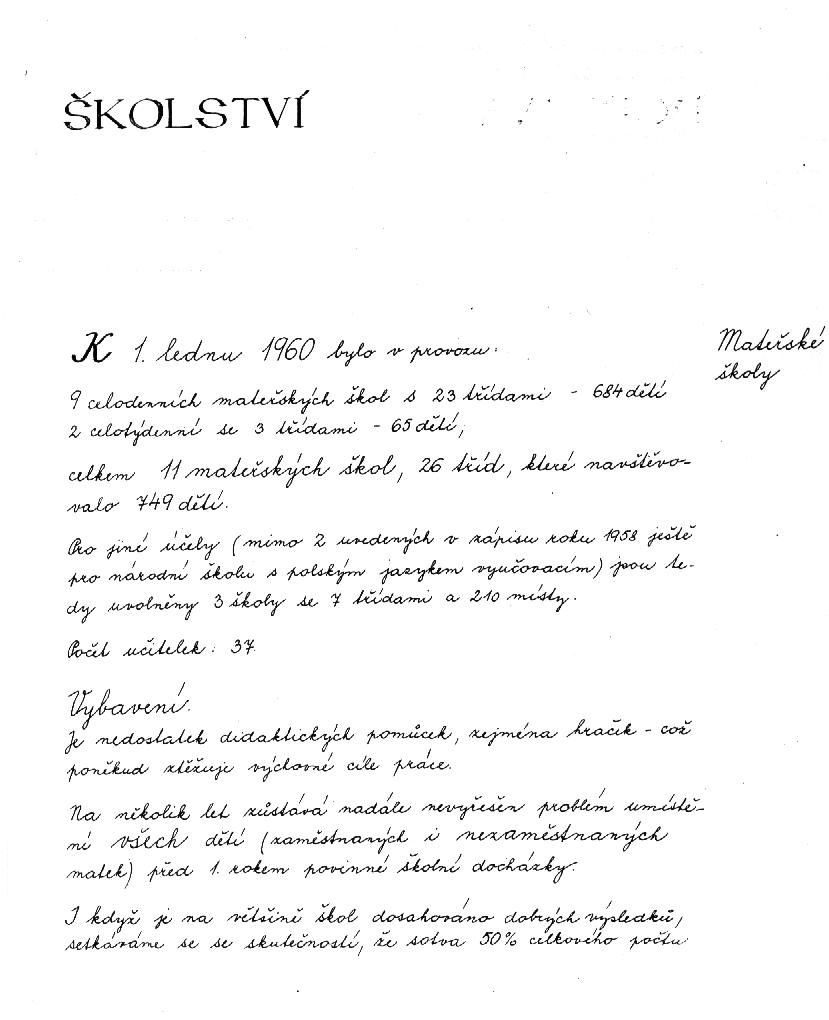 ŠKOLSTVÍ
Mateřské
školy
K 1. lednu 1960 bylo v provozu:
9 celodenních mateřských škol s 23 třídami - 684 dětí
2 celotýdenní se 3 třídami - 65 dětí,
celkem 11 mateřských škol, 26 tříd, které navštěvo-
valo 749 dětí.
Pro jiné účely (mimo 2 uvedených v zápisu roku 1958 ještě
pro národní školu s polským jazykem vyučovacím) jsou te-
dy uvolněny 3 školy se 7 třídami a 210 místy.
Počet učitelek: 37
Vybavení.
Je nedostatek didaktických pomůcek, zejména hraček - což
poněkud ztěžuje výchovné cíle práce.
Na několik let zůstává nadále nevyřešen problém umístě-
ní všech dětí (zaměstnaných i nezaměstnaných
matek) před 1. rokem povinné školní docházky.
I když je na většině škol dosahováno dobrých výsledků,
setkáváme se se skutečností, že sotva 50% celkového počtu